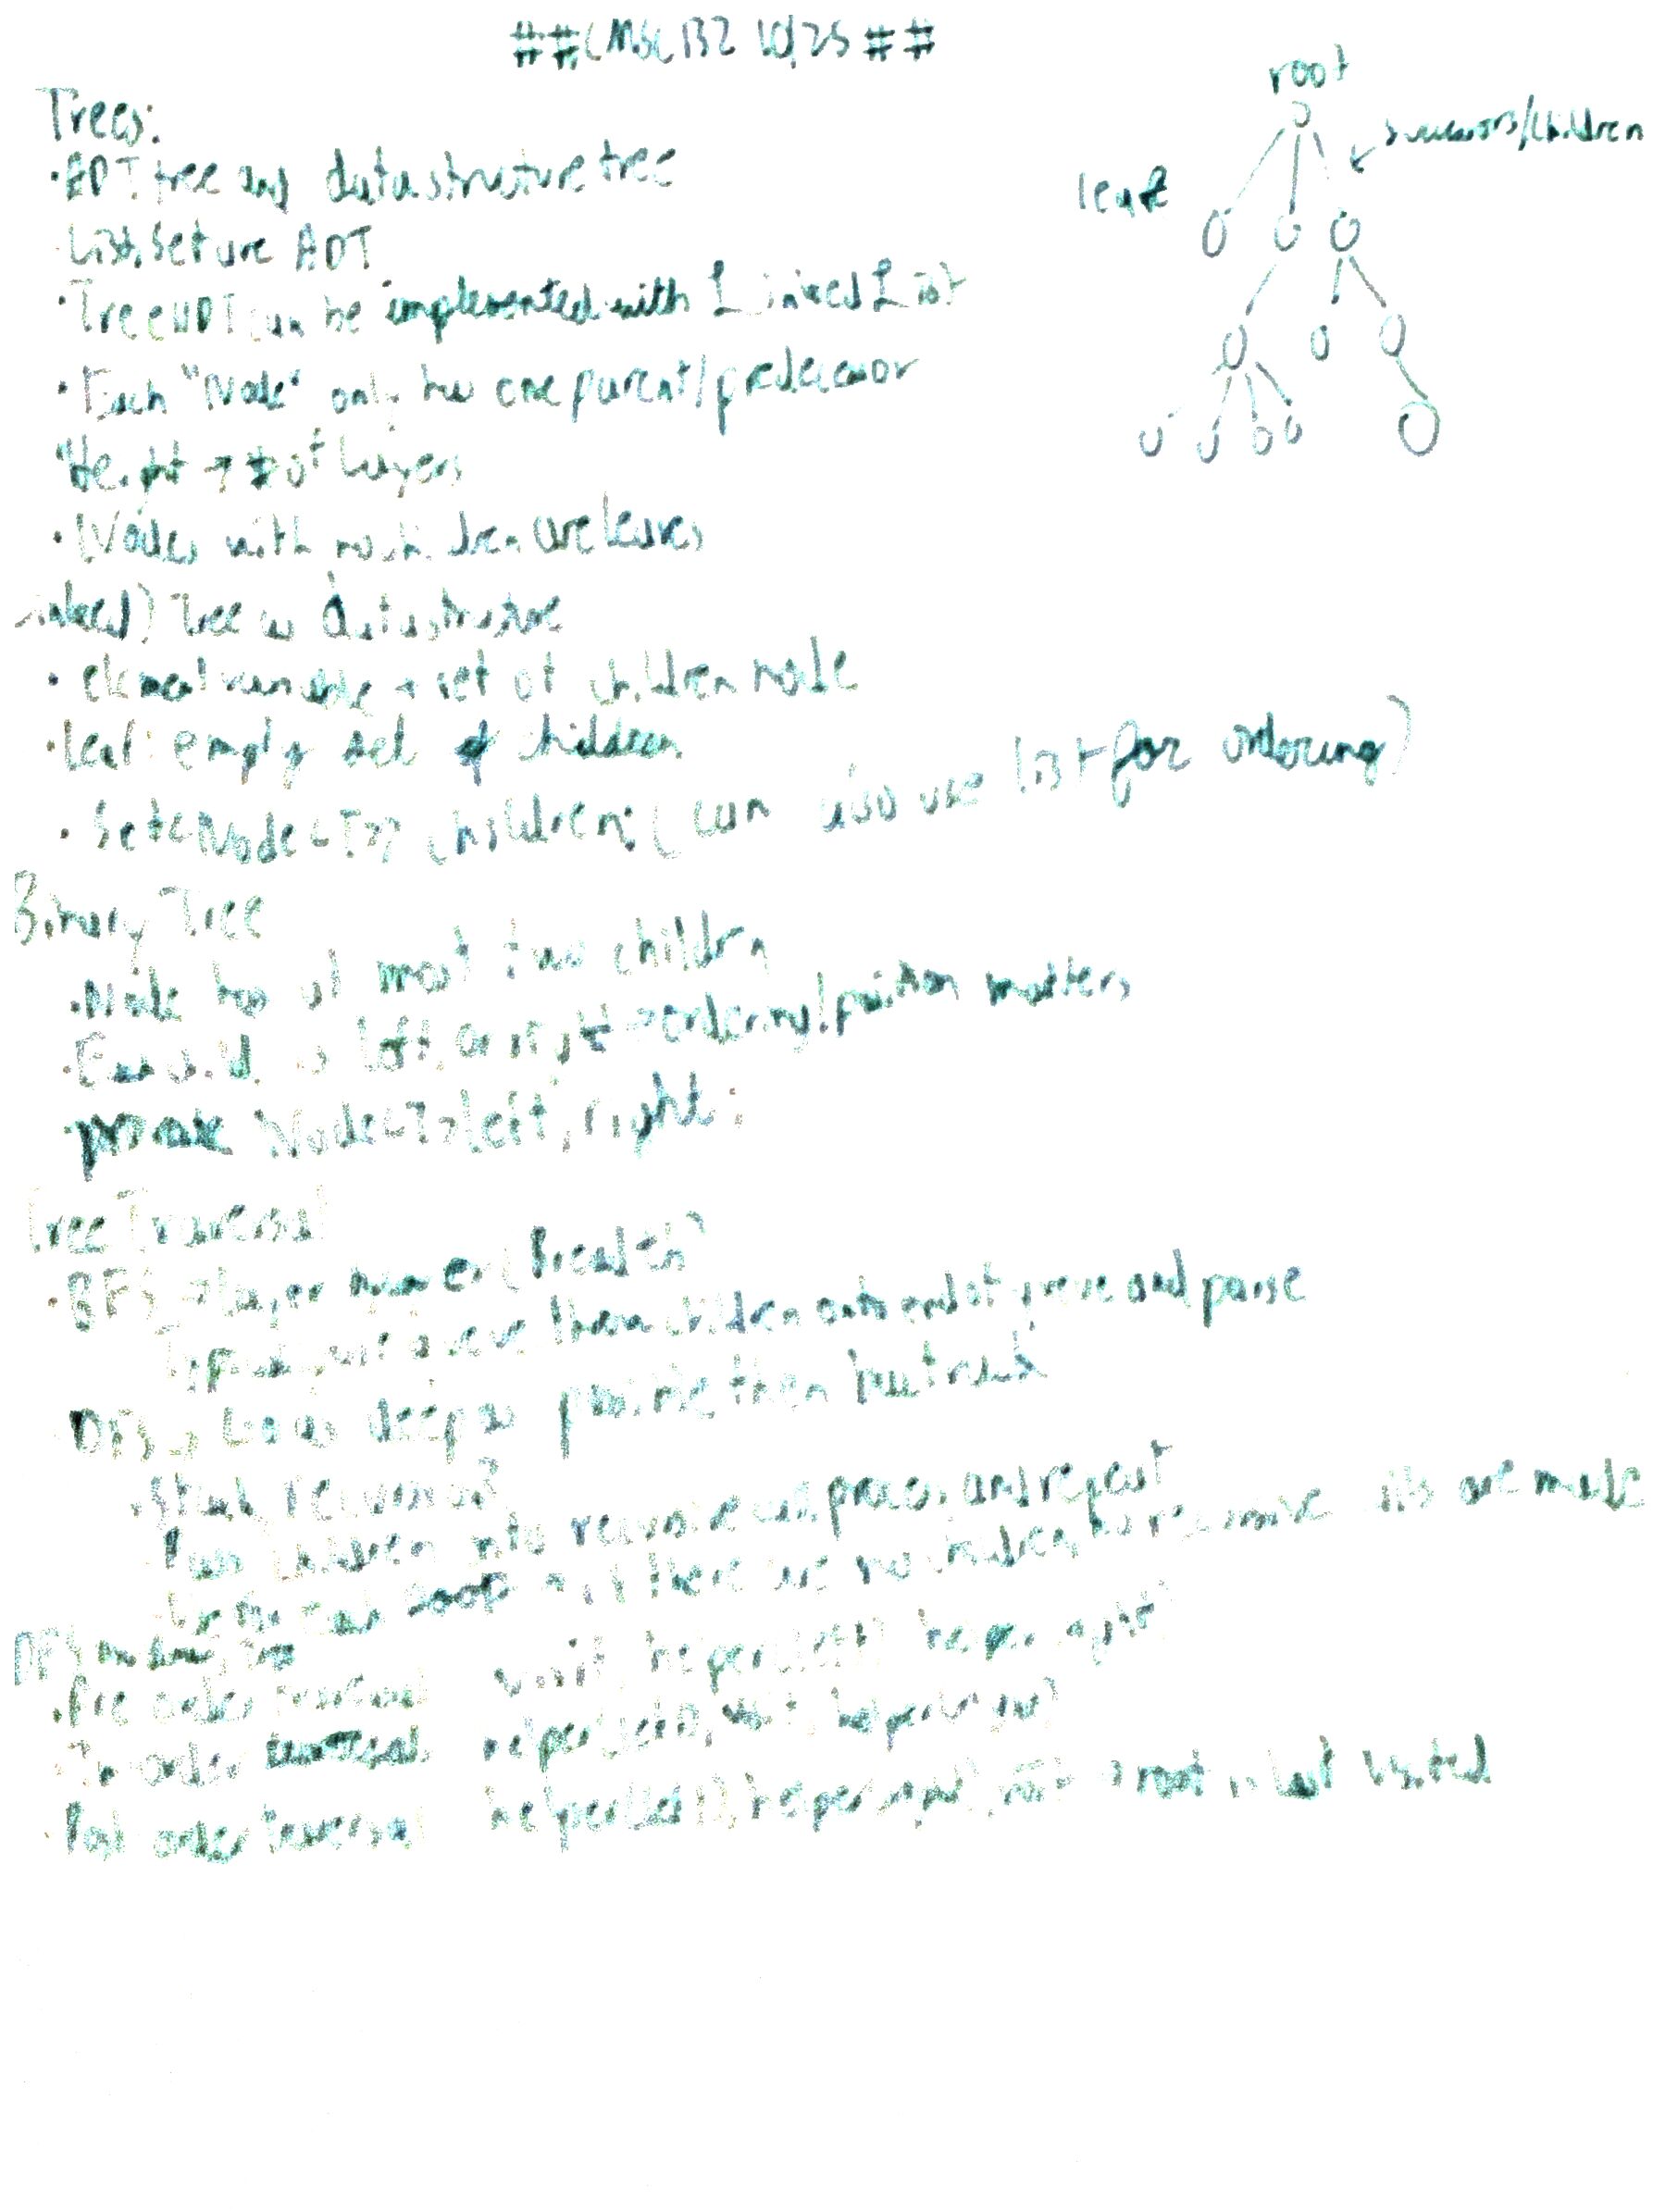 ##CMSC132 10/25##
root
successors/children
leaf
Trees:
·ADT tree and data structure tree
List, Set are ADT
·Tree ADT can be implemented with Linked List
·Each "Node" only has one parent/predecessor
·Height → # of layers
·Nodes with no children are leaves
Tree as data structure
·element variable + set of children node
·leaf: empty set of children
·Set<Node<T>> children; (can also use list for ordering)
Binary Tree
·Node has at most two children
·Each child is left or right → ordering/position matters
·private Node<T> left, right;
Tree Traversal
·BFS → layer (Breadth)
queue children onto end of queue and
·DFS → Go as deep as possible then backtrack
·Stack recursion?
Pass children into recursive call process and repeat
if there are no children no recursive calls are made
DFS on binary tree
·Pre order traversal visit helper(left) helper(right)
·In order traversal helper(left), visit, helper(right)
·Post order traversal helper(left), helper(right), visit → root is last visited